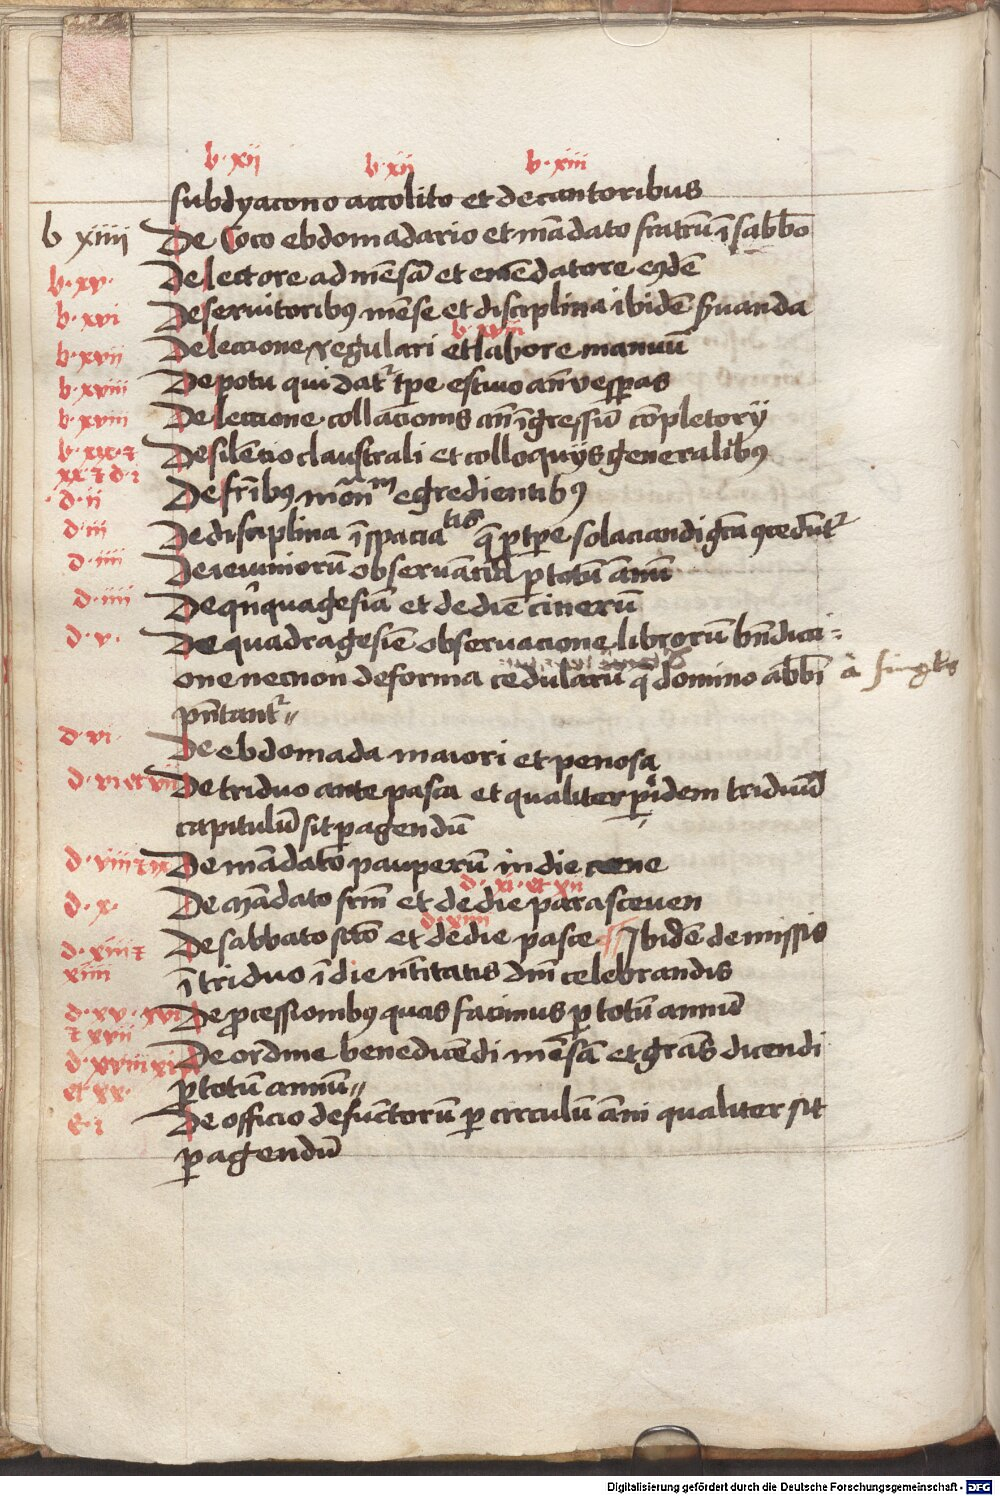 b·xij b·xij b·xiij
subdyacono accolito et de cantoribus
b xiiij De Coco ebdomadario et mādato fratrū ī sabbō
b·xv· De lectore ad mēsā et emēdatore eꝯdē
b·xvi De seruitoribꝯ mēse et disciplina ibidē ſuanda
b·xviii
b·xvii De leccione regulari et labore manuū
b·xviii De potu qui dat᷑ tꝑe estiuo an̄ vesꝑas
b·xviii De leccione collacionis an̄ īgressū cōpletorij
b·xix·⁊ De silētio claustrali et colloquijs generalibꝯ
xx ⁊ d·i
d·ii De fr̄ibꝯ mōn egredientibꝯ
d·iii De disciplina ī spaciatis q̄ ꝑ tꝑe solaciandi
d·iiii De ieiuniorū obseruātia ꝑ totū annū
d·iiii De qn̄quagesīa et de die cinerū
d·v· De quadragesīe obseruacione librorū bn̄dicci⸗
one necnon de forma cedularū q̄ domino abbī a singlis
pn̄tant᷑〃
d·vi· De ebdomada maiori et penosa
d·vi et vii De triduo ante pasca et qualiter ꝑ idem triduū
capitulū sit ꝑagendū
d·viii ⁊ ix De mādato pauperū in die cene
d·xi·et xii
d·x· De mādato frm̄ et de die parasceuen
d·xiiii
d·xiii ⁊ De sabbato scto et de die pasce ¶ Ibidē de missis
xiiii ī triduo ī die nr̄titatis dnī celebrandis
d·xv· xvi De ꝓcessionibꝯ quas facimus ꝑ totū annū
⁊ xvii
d·xviii xix De ordine benedicēdi mēsā et grās dicendi
et xx· ꝑ totū annū〃
e·i De officio defūctorū ꝑ circulū āni qualiter sit
ꝑagendū
Digitalisierung gefördert durch die Deutsche Forschungsgemeinschaft - DFG